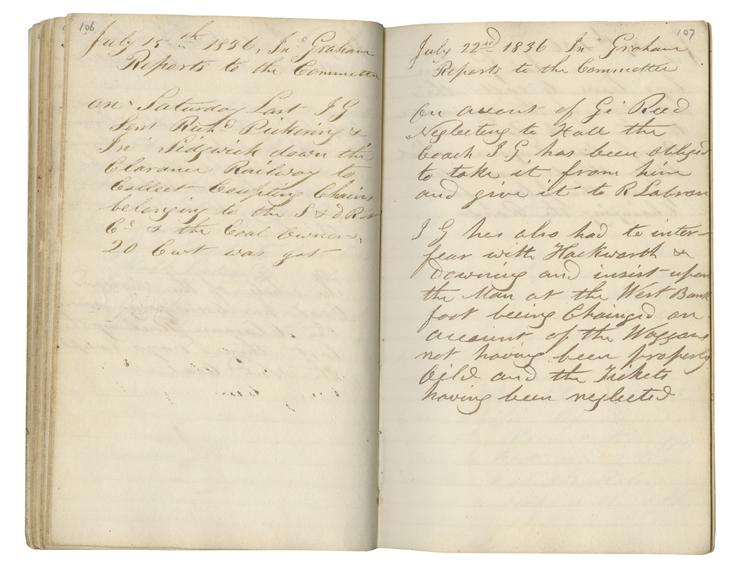 106
July 15th 1836, Jno Graham
Reports to the Committee
on Saturday Last J G
Sent Richd Pickering &
Jno Sedgwick down the
Clarance Railway to
Collect Coupling Chains
belonging to the S & D R
Co & the Coal Owners,
20 Cwt was got
107
July 22nd 1836 Jno Graham
Reports to the Committee
On account of Go Reed
Neglecting to Hall the
Coach J G has been obliged
to take it from him
and give it to R Labron
J G has also had to inter-
fear with Hackworth &
Downing and insist upon
the Man at the West Bank
foot beeing Chainged on
account of the Waggons
not having been properly
Oild and the Tickets
having been neglected